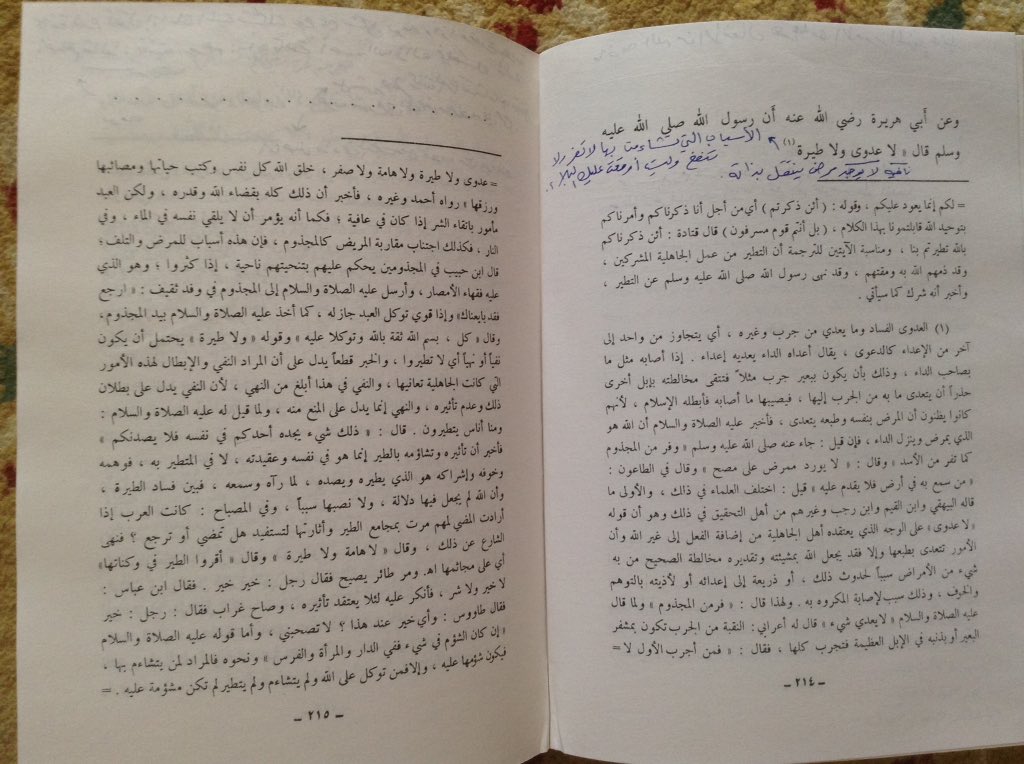 وعن أبي هريرة رضي الله عنه أن رسول الله صلى الله عليه
وسلم قال « لا عدوى ولا طيرة (١)
الأسباب التي تشاءمت بها لا تضر ولا
تنفع وليست
نافية لا يوجد مرض ينتقل بذاته .
= لكم إنما يعود عليكم ، وقوله : ( أئن ذكرتم ) أي من أجل أنا ذكرناكم وأمرناكم
بتوحيد الله قابلتمونا بهذا الكلام ، ( بل أنتم قوم مسرفون ) قال قتادة : أئن ذكرناكم
بالله تطيرتم بنا ، ومناسبة الآيتين للترجمة أن التطير من عمل الجاهلية المشركين ،
وقد ذمهم الله به ومقتهم ، وقد نهى رسول الله صلى الله عليه وسلم عن التطير ،
وأخبر أنه شرك كما سيأتي .
(١) العدوى الفساد وما يعدي من جرب وغيره ، أي يتجاوز من واحد إلى
آخر من الإعداء كالدعوى ، يقال أعداه الداء يعديه إعداء . إذا أصابه مثل ما
بصاحب الداء ، وذلك بأن يكون ببعير جرب مثلاً فتتقى مخالطته بإبل أخرى
حذراً أن يتعدى ما به من الجرب إليها ، فيصيبها ما أصابه فأبطله الإسلام ، لأنهم
كانوا يظنون أن المرض بنفسه وطبعه يتعدى ، فأخبر عليه الصلاة والسلام أن الله هو
الذي يمرض وينزل الداء ، فإن قيل : جاء عنه صلى الله عليه وسلم « وفر من المجذوم
كما تفر من الأسد » وقال : « لا يورد ممرض على مصح » وقال في الطاعون :
« من سمع به في أرض فلا يقدم عليه » قيل : اختلف العلماء في ذلك ، والأولى ما
قاله البيهقي وابن القيم وابن رجب وغيرهم من أهل التحقيق في ذلك وهو أن قوله
« لا عدوى » على الوجه الذي يعتقده أهل الجاهلية من إضافة الفعل إلى غير الله وأن
الأمور تتعدى بطبعها وإلا فقد يجعل الله بمشيئته وتقديره مخالطة الصحيح من به
شيء من الأمراض سبباً لحدوث ذلك ، أو ذريعة إلى إعدائه أو لأذيته بالتوهم
والخوف ، وذلك سبب لإصابة المكروه به . ولهذا قال : « فر من المجذوم » ولما قال
عليه الصلاة والسلام « لا يعدي شيء » قال له أعرابي : النقبة من الجرب تكون بمشفر
البعير أو بذنبه في الإبل العظيمة فتجرب كلها ، فقال : « فمن أجرب الأول لا =
– ٢١٤ –
= عدوى ولا طيرة ولا هامة ولا صفر ، خلق الله كل نفس وكتب حياتها ومصائبها
ورزقها » رواه أحمد وغيره ، فأخبر أن ذلك كله بقضاء الله وقدره ، ولكن العبد
مأمور باتقاء الشر إذا كان في عافية ؛ فكما أنه يؤمر أن لا يلقي نفسه في الماء ، وفي
النار ، فكذلك اجتناب مقاربة المريض كالمجذوم ، فإن هذه أسباب للمرض والتلف ؛
قال ابن حبيب في المجذومين يحكم عليهم بتنحيتهم ناحية ، إذا كثروا ؛ وهو الذي
عليه فقهاء الأمصار ، وأرسل عليه الصلاة والسلام إلى المجذوم في وفد ثقيف : « ارجع
فقد بايعناك » وإذا قوي توكل العبد جاز له ، كما أخذ عليه الصلاة والسلام بيد المجذوم،
وقال « كل ، بسم الله ثقة بالله وتوكلا عليه » وقوله « ولا طيرة » يحتمل أن يكون
نفياً أو نهياً أي لا تطيروا ، والخبر قطعاً يدل على أن المراد النفي والإبطال لهذه الأمور
التي كانت الجاهلية تعانيها ، والنفي في هذا أبلغ من النهي ، لأن النفي يدل على بطلان
ذلك وعدم تأثيره ، والنهي إنما يدل على المنع منه ، ولما قيل له عليه الصلاة والسلام :
ومنا أناس يتطيرون . قال : « ذلك شيء يجده أحدكم في نفسه فلا يصدنكم »
فأخبر أن تأثيره وتشاؤمه بالطير إنما هو في نفسه وعقيدته ، لا في المتطير به ، فوهمه
وخوفه وإشراكه هو الذي يطيره ويصده ، لما رآه وسمعه ، فبين فساد الطيرة ،
وأن الله لم يجعل فيها دلالة ، ولا نصبها سبباً ، وفي المصباح : كانت العرب إذا
أرادت المضي لمهم مرت بمجامع الطير وأثارتها لتستفيد هل تمضي أو ترجع ؟ فنهى
الشارع عن ذلك ، وقال « لا هامة ولا طيرة » وقال « أقروا الطير في وكناتها»
أي على مجاثمها اهـ. ومر طائر يصيح فقال رجل : خير خير . فقال ابن عباس :
لا خير ولا شر ، فأنكر عليه لئلا يعتقد تأثيره ، وصاح غراب فقال : رجل : خير
فقال طاووس : وأي خير عند هذا ؟ لا تصحبني ، وأما قوله عليه الصلاة والسلام
« إن كان الشؤم في شيء ففي الدار والمرأة والفرس » ونحوه فالمراد لمن يتشاءم بها ،
فيكون شؤمها عليه ، وإلا فمن توكل على الله ولم يتشاءم ولم يتطير لم تكن مشؤمة عليه . =
– ٢١٥ –